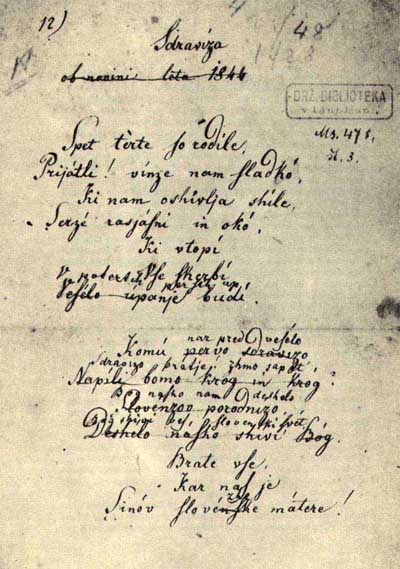 12)
48
Sdraviza
ob novini leta 1844
DRŽ. BIBLIOTEKA
v Ljubljani
Ms. 471.
Spet tèrte ſo rodile,
Prijátli! vínze nam ſladkó,
Ki nam oshívlja shíle,
Serzé rasjáſni in okó,
Ki vtopí
Vſe ſkerbí
V poterth perſih up
Veſélo úpanje budí.
nar pred veſélo
Komú pervo sdravizo
Sdravizo, bratje! zhmo sapét',
Napíli bomo krog in krog?
Bog naſho nam deshelo
Slovenzov porodnizo
Bog shivi veſ ſlovenſki ſvét,
Deshelo naſho shivi Bóg.
Brate vſe,
Kar naſ je
Sinóv ſlovénſke mátere!